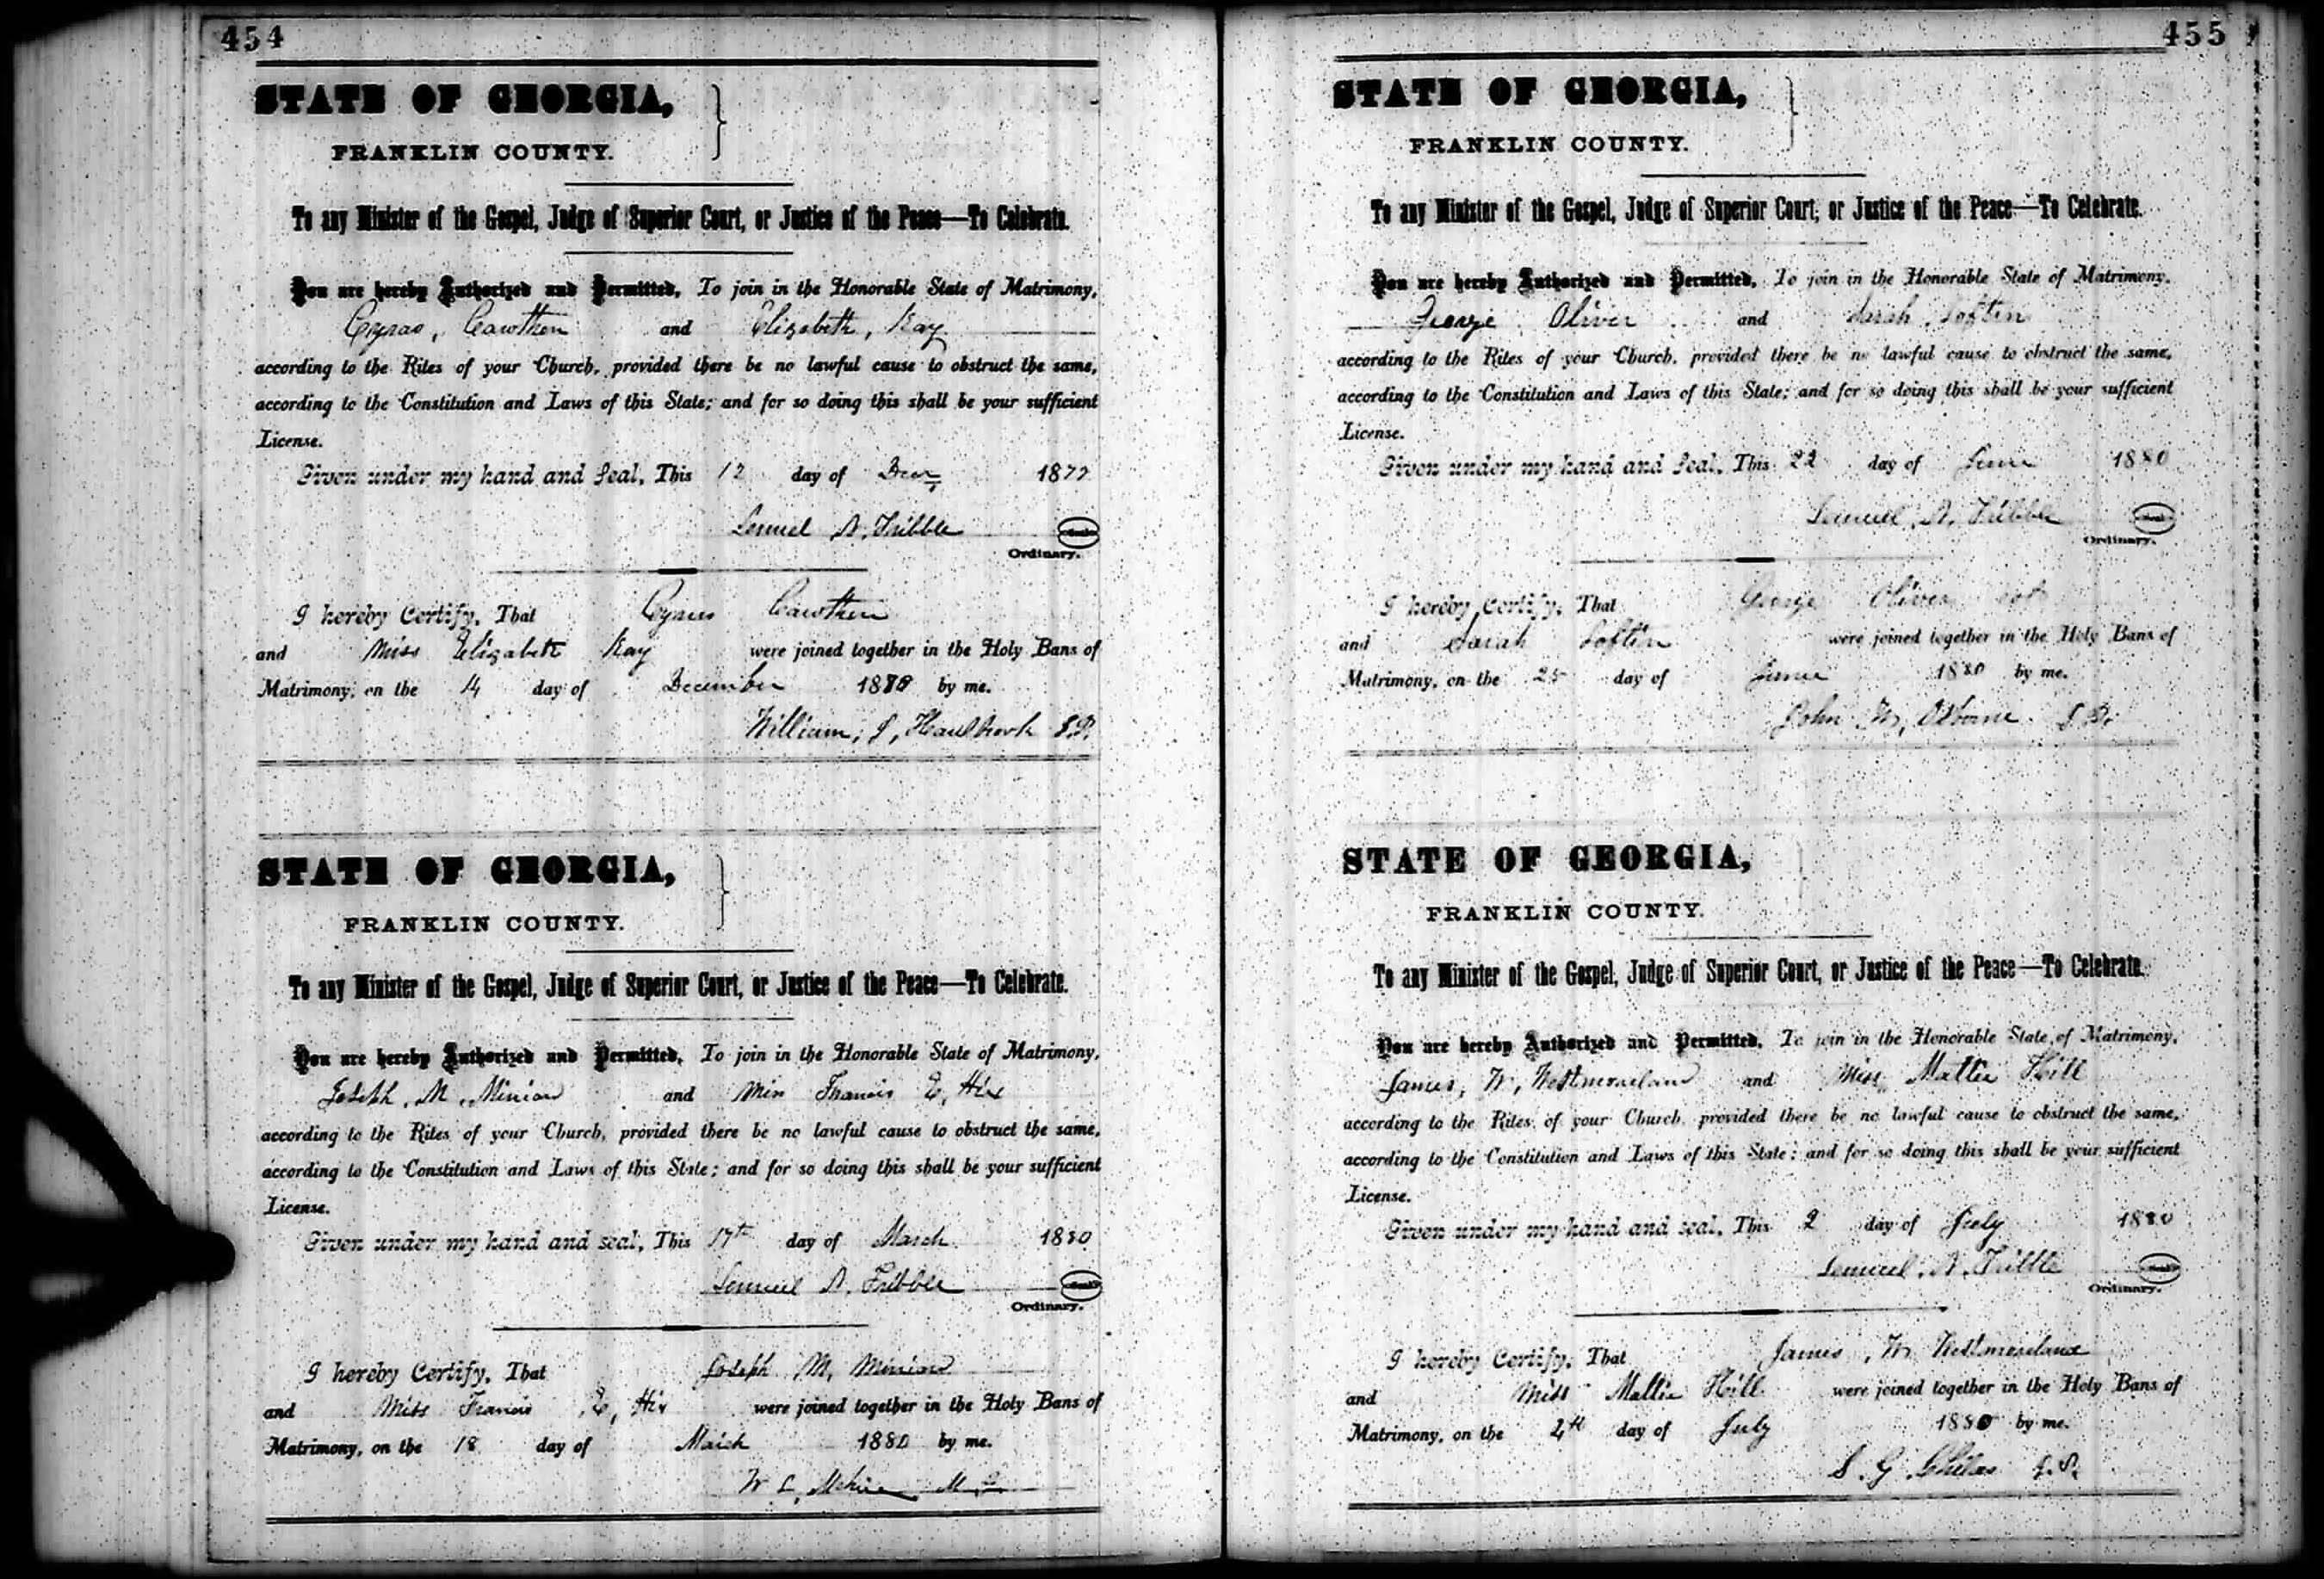 454
STATE OF GEORGIA,
FRANKLIN COUNTY.
To any Minister of the Gospel, Judge of Superior Court, or Justice of the Peace—To Celebrate.
You are hereby Authorized and Permitted, To join in the Honorable State of Matrimony,
Cyrus, Cawthen and Elizabeth, Kay
according to the Rites of your Church, provided there be no lawful cause to obstruct the same,
according to the Constitution and Laws of this State; and for so doing this shall be your sufficient
License.
Given under my hand and Seal, This 12 day of Decr 1877
Samuel A. Tribble
Ordinary.
I hereby Certify, That Cyrus Cawthen
and Miss Elizabeth Kay were joined together in the Holy Bans of
Matrimony, on the 14 day of December by me.
William, J,
STATE OF GEORGIA,
FRANKLIN COUNTY.
To any Minister of the Gospel, Judge of Superior Court, or Justice of the Peace—To Celebrate.
You are hereby Authorized and Permitted, To join in the Honorable State of Matrimony,
Joseph, M, and Miss Francis E, Hix
according to the Rites of your Church, provided there be no lawful cause to obstruct the same,
according to the Constitution and Laws of this State; and for so doing this shall be your sufficient
License.
Given under my hand and seal, This 17th day of March 1880
Samuel A. Tribble
Ordinary.
I hereby Certify, That Joseph M,
and Miss Francis E, Hix were joined together in the Holy Bans of
Matrimony, on the 18 day of March 1880 by me.
W L,
455
STATE OF GEORGIA,
FRANKLIN COUNTY.
To any Minister of the Gospel, Judge of Superior Court, or Justice of the Peace—To Celebrate.
You are hereby Authorized and Permitted, To join in the Honorable State of Matrimony,
George Oliver and Sarah, Loftin
according to the Rites of your Church, provided there be no lawful cause to obstruct the same,
according to the Constitution and Laws of this State; and for so doing this shall be your sufficient
License.
Given under my hand and Seal, This 22 day of June 1880
Samuel A. Tribble
Ordinary.
I hereby Certify, That George Oliver
and Sarah Loftin were joined together in the Holy Bans of
Matrimony, on the 25 day of June 1880 by me.
John W, Osborne J.P.
STATE OF GEORGIA,
FRANKLIN COUNTY.
To any Minister of the Gospel, Judge of Superior Court, or Justice of the Peace—To Celebrate.
You are hereby Authorized and Permitted, To join in the Honorable State of Matrimony,
James, W, Westmoreland and Miss Mattie Hill
according to the Rites of your Church, provided there be no lawful cause to obstruct the same,
according to the Constitution and Laws of this State; and for so doing this shall be your sufficient
License.
Given under my hand and seal, This 2 day of July 1880
Samuel A. Tribble
Ordinary.
I hereby Certify, That James, W Westmoreland
and Miss Mattie Hill were joined together in the Holy Bans of
Matrimony, on the 4th day of July 1880 by me.
S. G. J.P.